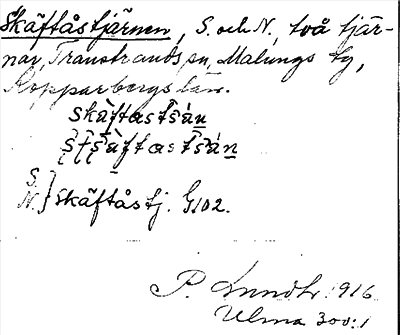 Skäftåstjärnen, S. och N., två tjär-
nar, Transtrands sn, Malungs tg,
Kopparbergs län.
skäftastsä̀n
ṣtṣäftastsän
S.
N. } Skäftåstj. G102.
P. Lundtr. 1916
Ulma 300:1